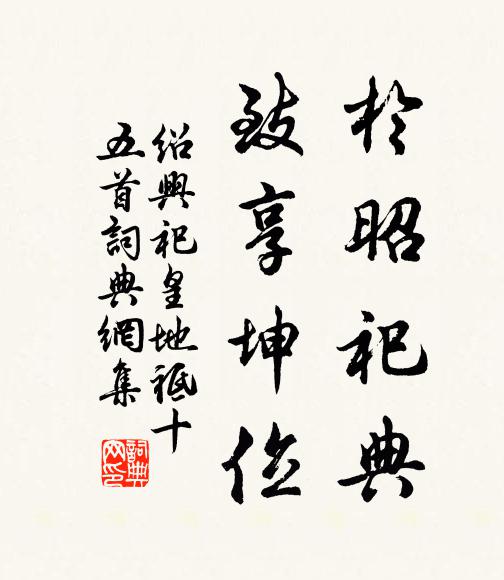 於昭祀典
致享坤儀
紹興祀皇地祗十
五首詞典網集
詞典
网印